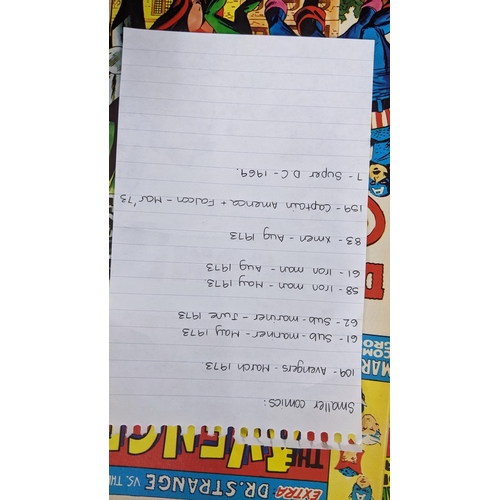 Smaller comics:
109 - Avengers - March 1973
61 - Sub-mariner - May 1973
62 - Sub-mariner - June 1973
58 - Iron man - May 1973
61 - Iron man - Aug 1973
83 - Xmen - Aug 1973
159 - Captain America + Falcon - Mar '73
7 - Super D.C - 1969.
THE
EXTRA
DR. STRANGE VS. THE
MAR
COM
GRO